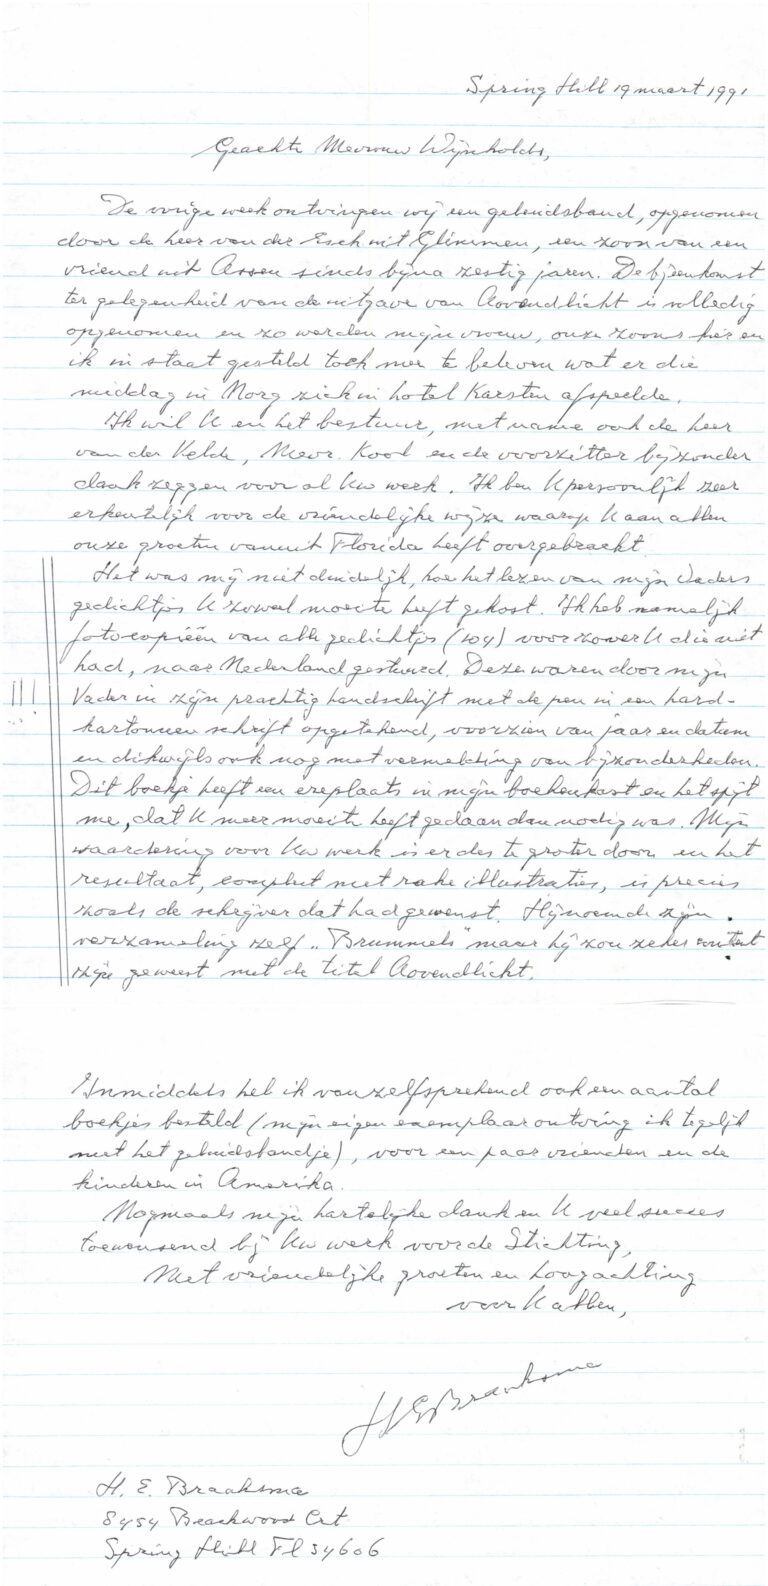 Spring Hill 19 maart 1991
Geachte Mevrouw Wijnholds,
De vorige week ontvingen wij een geluidsband, opgenomen
door de heer van der Esch uit Glimmen, een zoon van een
vriend uit Assen sinds bijna zestig jaren. De bijeenkomst
ter gelegenheid van de uitgave van Aovendlicht is volledig
opgenomen en zo werden mijn vrouw, onze zoons hier en
ik in staat gesteld toch mee te beleven wat er die
middag in Norg zich in hotel Karsten afspeelde.
Ik wil U en het bestuur, met name ook de heer
van der Velde, Mevr. Kool en de voorzitter bijzonder
dank zeggen voor al Uw werk. Ik ben U persoonlijk zeer
erkentelijk voor de vriendelijke wijze waarop U aan allen
onze groeten vanuit Florida heeft overgebracht.
Het was mij niet duidelijk, hoe het lezen van mijn Vaders
gedichtjes U zoveel moeite heeft gekost. Ik heb namelijk
fotocopiëen van alle gedichtjes (104) voor zover U die niet
had, naar Nederland gestuurd. Deze waren door mijn
!!! Vader in zijn prachtig handschrift met de pen in een hard-
kartonnen schrift opgetekend, voorzien van jaar en datum
en dikwijls ook nog met vermelding van bijzonderheden.
Dit boekje heeft een ereplaats in mijn boekenkast en het spijt
me, dat U meer moeite heeft gedaan dan nodig was. Mijn
waardering voor Uw werk is er des te groter door en het
resultaat, compleet met rake illustraties, is precies
zoals de schrijver dat had gewenst. Hij noemde zijn
verzameling zelf „Brummels" maar hij zou zeker content
zijn geweest met de titel Aovendlicht.
Inmiddels heb ik vanzelfsprekend ook een aantal
boekjes besteld (mijn eigen exemplaar ontving ik tegelijk
met het geluidsbandje), voor een paar vrienden en de
kinderen in Amerika.
Nogmaals mijn hartelijke dank en U veel succes
toewensend bij Uw werk voor de Stichting,
Met vriendelijke groeten en hoogachting
voor U allen,
HEBraaksma
H. E. Braaksma
8454 Beackwood Crt
Spring Hill Fl 34606